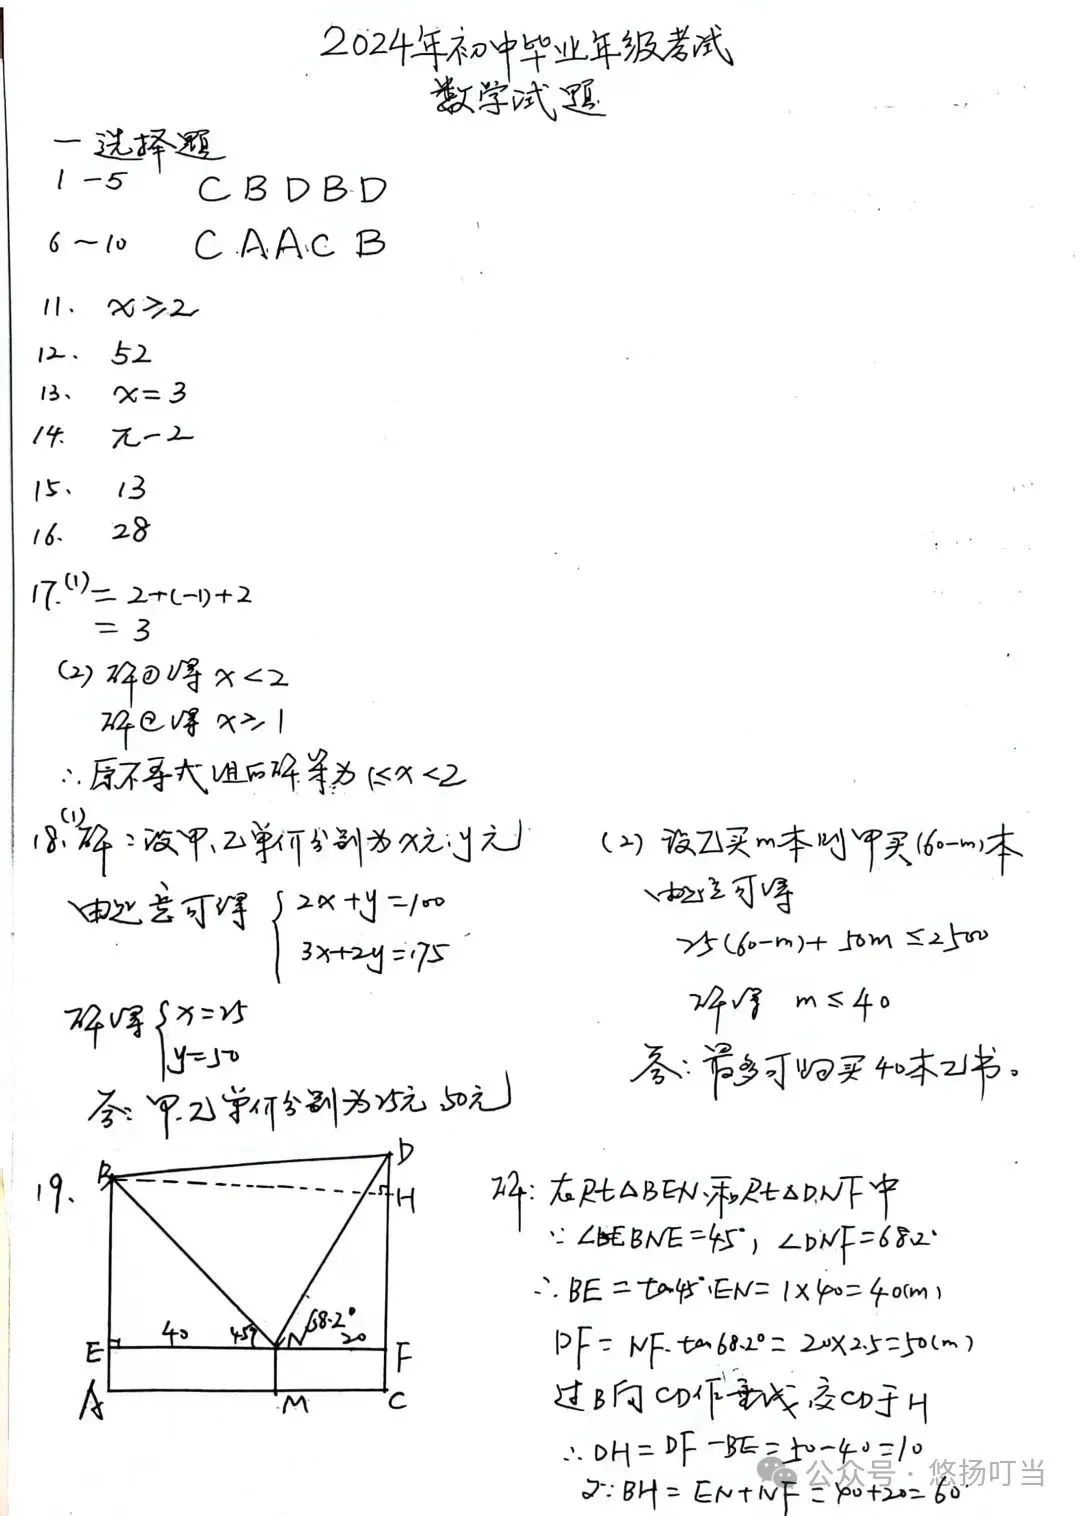 2024年初中毕业年级考试
数学试题
一 选择题
1-5 C B D B D
6~10 C A A C B
11. x≥2
12. 52
13. x=3
14. π-2
15. 13
16. 28
17.(1)= 2+(-1)+2
= 3
(2) 解①得 x<2
解②得 x≥1
∴原不等式组的解集为 1≤x<2
18.(1)解:设甲、乙单价分别为x元,y元
由题意可得 { 2x+y=100
3x+2y=175
解得 { x=25
y=50
答:甲、乙单价分别为25元 50元
(2) 设乙买m本则甲买(60-m)本
由题意可得
25(60-m)+50m≤2500
解得 m≤40
答:最多可购买40本乙书。
19.
B D H
E 40 45° N 68.2° 20 F
A M C
解:在Rt△BEN和Rt△DNF中
∵∠BNE=45°, ∠DNF=68.2°
∴BE=tan45°·EN=1×40=40(m)
DF=NF·tan68.2°=20×2.5=50(m)
过B向CD作垂线交CD于H
∴DH=DF-BE=50-40=10
又∵BH=EN+NF=40+20=60
公众号·悠扬叮当